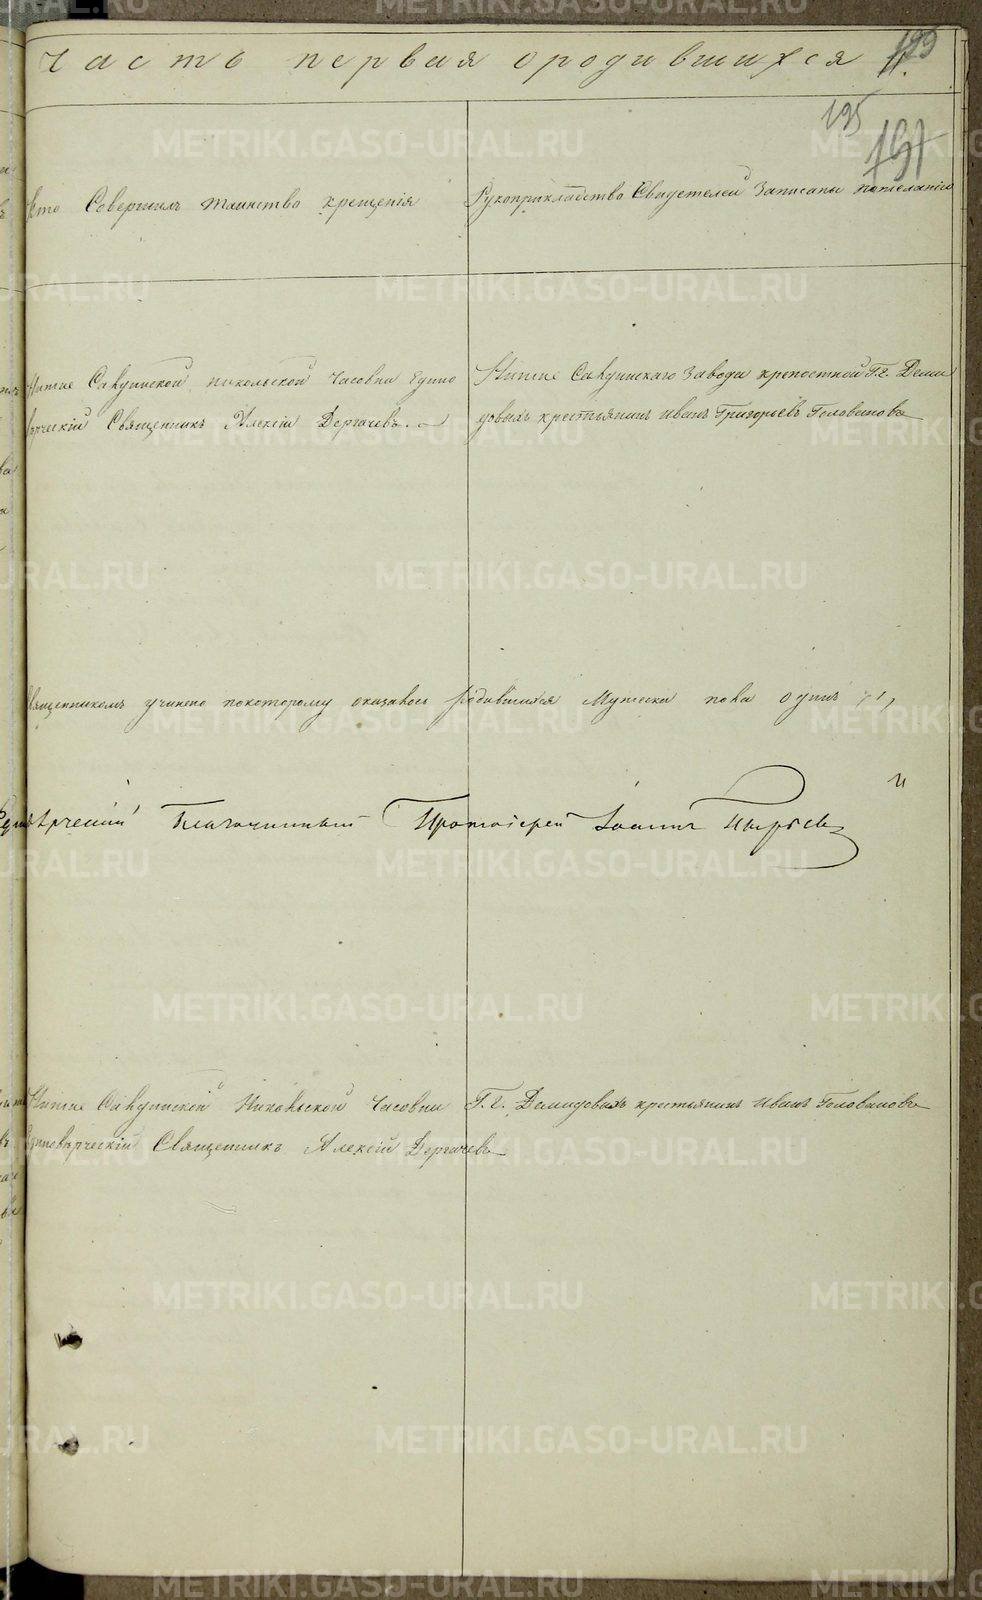 Часть первая ородившихся
195
Кто Совершилъ таинство крещенія
Рукоприкладство Свидетелей Записаны пожеланію
Нижне Салдинской никольской Часовни Едино
верческій Священникъ Алексій Дергачевъ.
Нижне Салдинскаго Завода крепостной Г.г. Деми
довыхъ крестьянинъ Иванъ Григорьевъ Головановъ
Священникомъ учинено покоторому оказалось родившихся Мужеска пола одинъ
Единоверческій Благочинный Протоіерей Іоаннъ Пырьевъ
Нижне Салдинской Никольской Часовни
Единоверческій Священникъ Алексій Дергачевъ
Г.г. Демидовыхъ крестьянинъ Иванъ Головановъ
METRIKI.GASO-URAL.RU